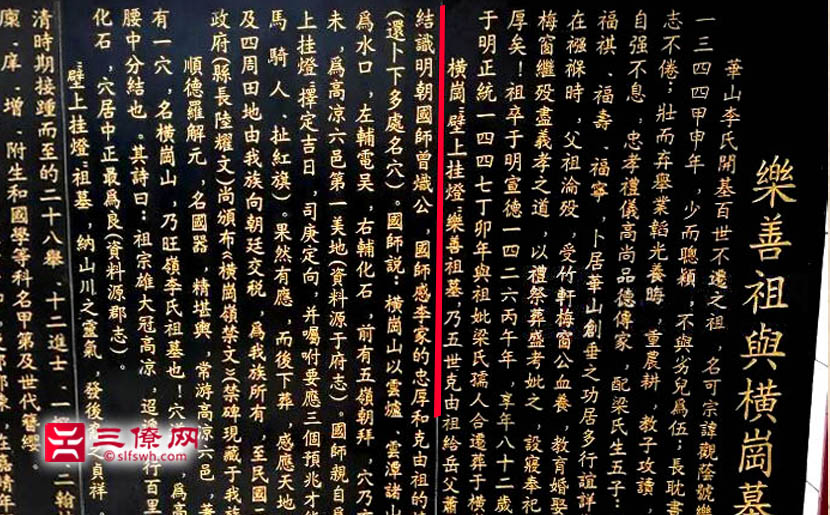 樂善祖與橫崗墓
華山李氏開基百世不遷之祖，名可宗諱觀蔭號樂
一三四四甲申年，少而聰穎，不與劣兒爲伍；長耽書
志不倦；壯而弃舉業韜光養晦，重農耕，教子攻讀，
自强不息，忠孝禮儀高尚品德傳家，配梁氏生五子：
福祺、福壽、福寧，卜居華山創垂之功居多行誼詳
在襁褓時，父祖淪殁，受竹軒梅窗公血養，教育婚娶
梅窗繼殁盡義孝之道，以禮祭葬盛考妣之，設寢奉祀
厚矣！祖卒于明宣德一四二六丙午年，享年八十二歲
于明正統一四四七丁卯年與祖妣梁氏孺人合遷葬于橫
橫崗"壁上挂燈"樂善祖墓，乃五世克由祖給岳父蕭
結識明朝國師曾熾公，國師感李家的忠厚和克由祖的
(還卜下多處名穴)。國師説：橫崗山以雲爐、雲潭諸山
爲水口，左輔電吴，右輔化石，前有五嶺朝拜，穴乃
未，爲高凉六邑第一美地(資料源于府志)。國師親自爲
上挂燈"擇定吉日，司庚定向，并囑咐要應三個預兆才
馬騎人、扯紅旗)。果然有應，而後下葬，感應天地
及四周田地由我族向朝廷交税，爲我族所有，至民國二
政府(縣長陸耀文)尚頒布《橫崗嶺禁文》禁碑現藏于我族
順德羅解元，名國器，精堪輿，常游高凉六邑，著
有一穴，名橫崗山，乃旺嶺李氏祖墓也！穴 爲高
腰中分結也。其詩曰：祖宗雄大冠高凉，迢 行百里
化石，穴居中正最爲良(資料源郡志)。
"壁上挂燈"祖墓，納山川之靈氣，發後 之貞祥。
清時期接踵而至的二十八舉、十二進士、一 二翰
廪、庠、增、附生和國學等科名甲第及世代簪纓。
三僚网
slfswh.com